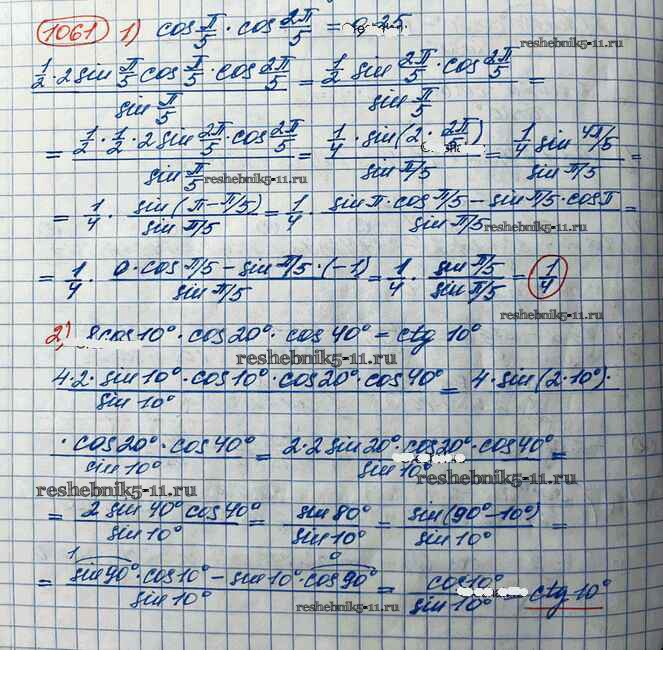 1061 1) cos π/5 · cos 2π/5 = 0,25.
reshebnik5-11.ru
(1/2 · 2 sin π/5 cos π/5 · cos 2π/5) / (sin π/5) = (1/2 sin 2π/5 · cos 2π/5) / (sin π/5) =
= (1/2 · 1/2 · 2 sin 2π/5 · cos 2π/5) / (sin π/5) = (1/4 · sin(2 · 2π/5)) / (sin π/5) = (1/4 sin 4π/5) / (sin π/5) =
reshebnik5-11.ru
= 1/4 · sin(π-π/5) / sin π/5 = 1/4 · (sin π · cos π/5 - sin π/5 · cos π) / (sin π/5) =
reshebnik5-11.ru
= 1/4 · (0 · cos π/5 - sin π/5 · (-1)) / (sin π/5) = 1/4 · (sin π/5) / (sin π/5) = 1/4
2) 8cos 10° · cos 20° · cos 40° = ctg 10°
reshebnik5-11.ru
(4·2· sin 10° · cos 10° · cos 20° · cos 40°) / (sin 10°) = 4 · sin(2·10°) ·
(· cos 20° · cos 40°) / (sin 10°) = (2·2 sin 20° · cos 20° · cos 40°) / (sin 10°) =
reshebnik5-11.ru
reshebnik5-11.ru
= (2 sin 40° cos 40°) / (sin 10°) = (sin 80°) / (sin 10°) = (sin(90°-10°)) / (sin 10°) =
1 0
= (sin 90° · cos 10° - sin 10° · cos 90°) / (sin 10°) = (cos 10°) / (sin 10°) = ctg 10°
reshebnik5-11.ru
reshebnik5-11.ru